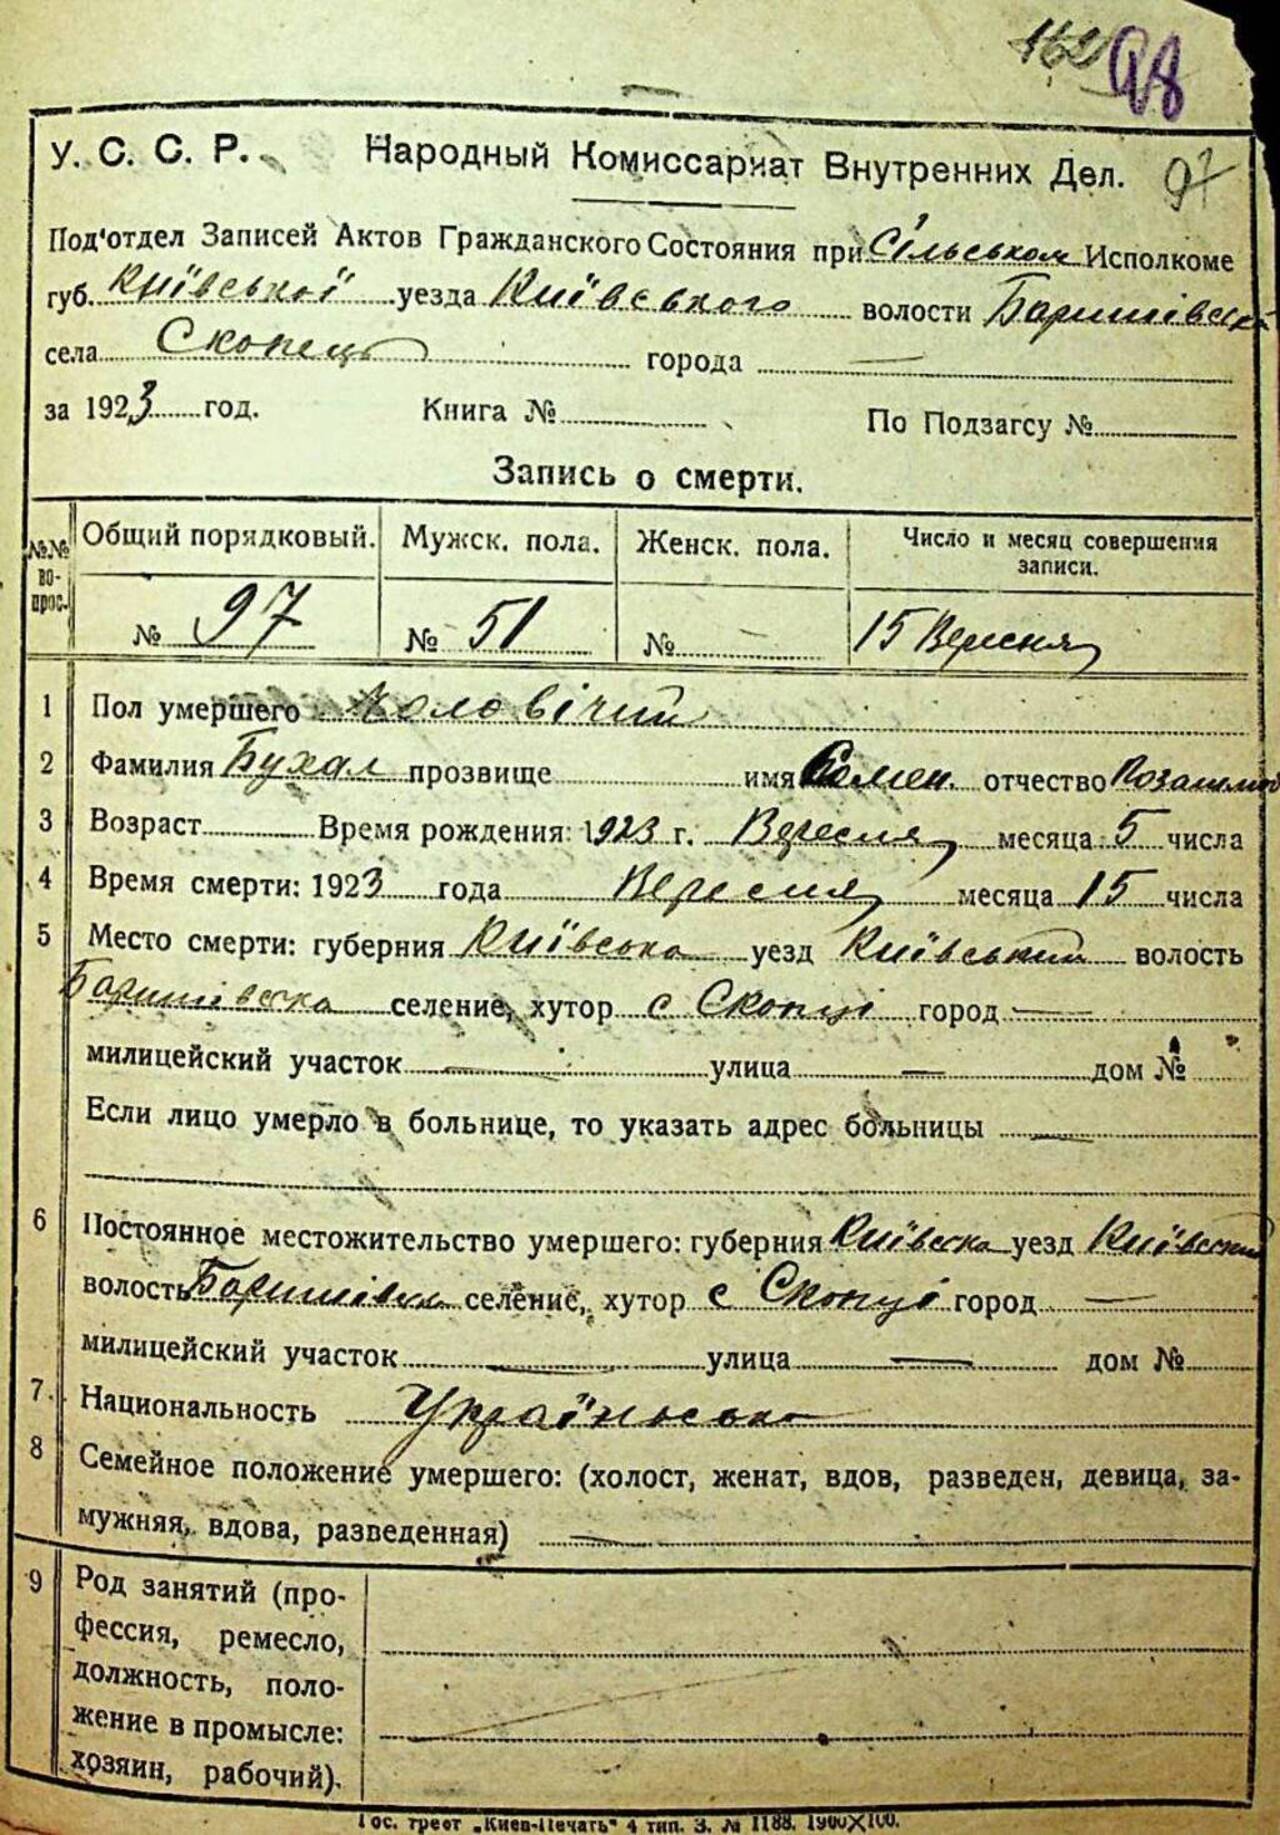 162 98
У. С. С. Р. Народный Комиссариат Внутренних Дел. 97
Под'отдел Записей Актов Гражданского Состояния при Сільськом Исполкоме
губ. Київської уезда Київського волости Баришівськ
села Скопець города —
за 1923 год. Книга № По Подзагсу №
Запись о смерти.
№№ вопрос. Общий порядковый. Мужск. пола. Женск. пола. Число и месяц совершения записи.
№ 97 № 51 № 15 Вересня
1 Пол умершего Чоловічий
2 Фамилия Бухал прозвище имя Семен. отчество
3 Возраст Время рождения: 1923 г. Вересня месяца 5 числа
4 Время смерти: 1923 года Вересня месяца 15 числа
5 Место смерти: губерния Київська уезд Київський волость
Баришівська селение, хутор с Скопці город —
милицейский участок — улица — дом №
Если лицо умерло в больнице, то указать адрес больницы —
6 Постоянное местожительство умершего: губерния Київська уезд Київський
волость Баришівська селение, хутор с Скопці город —
милицейский участок — улица — дом №
7. Национальность Українська
8 Семейное положение умершего: (холост, женат, вдов, разведен, девица, за-
мужняя, вдова, разведенная) —
9 Род занятий (про-
фессия, ремесло,
должность, поло-
жение в промысле:
хозяин, рабочий).
Гос. трест „Киев-Печать" 4 тип. З. № 1188. 1900×100.